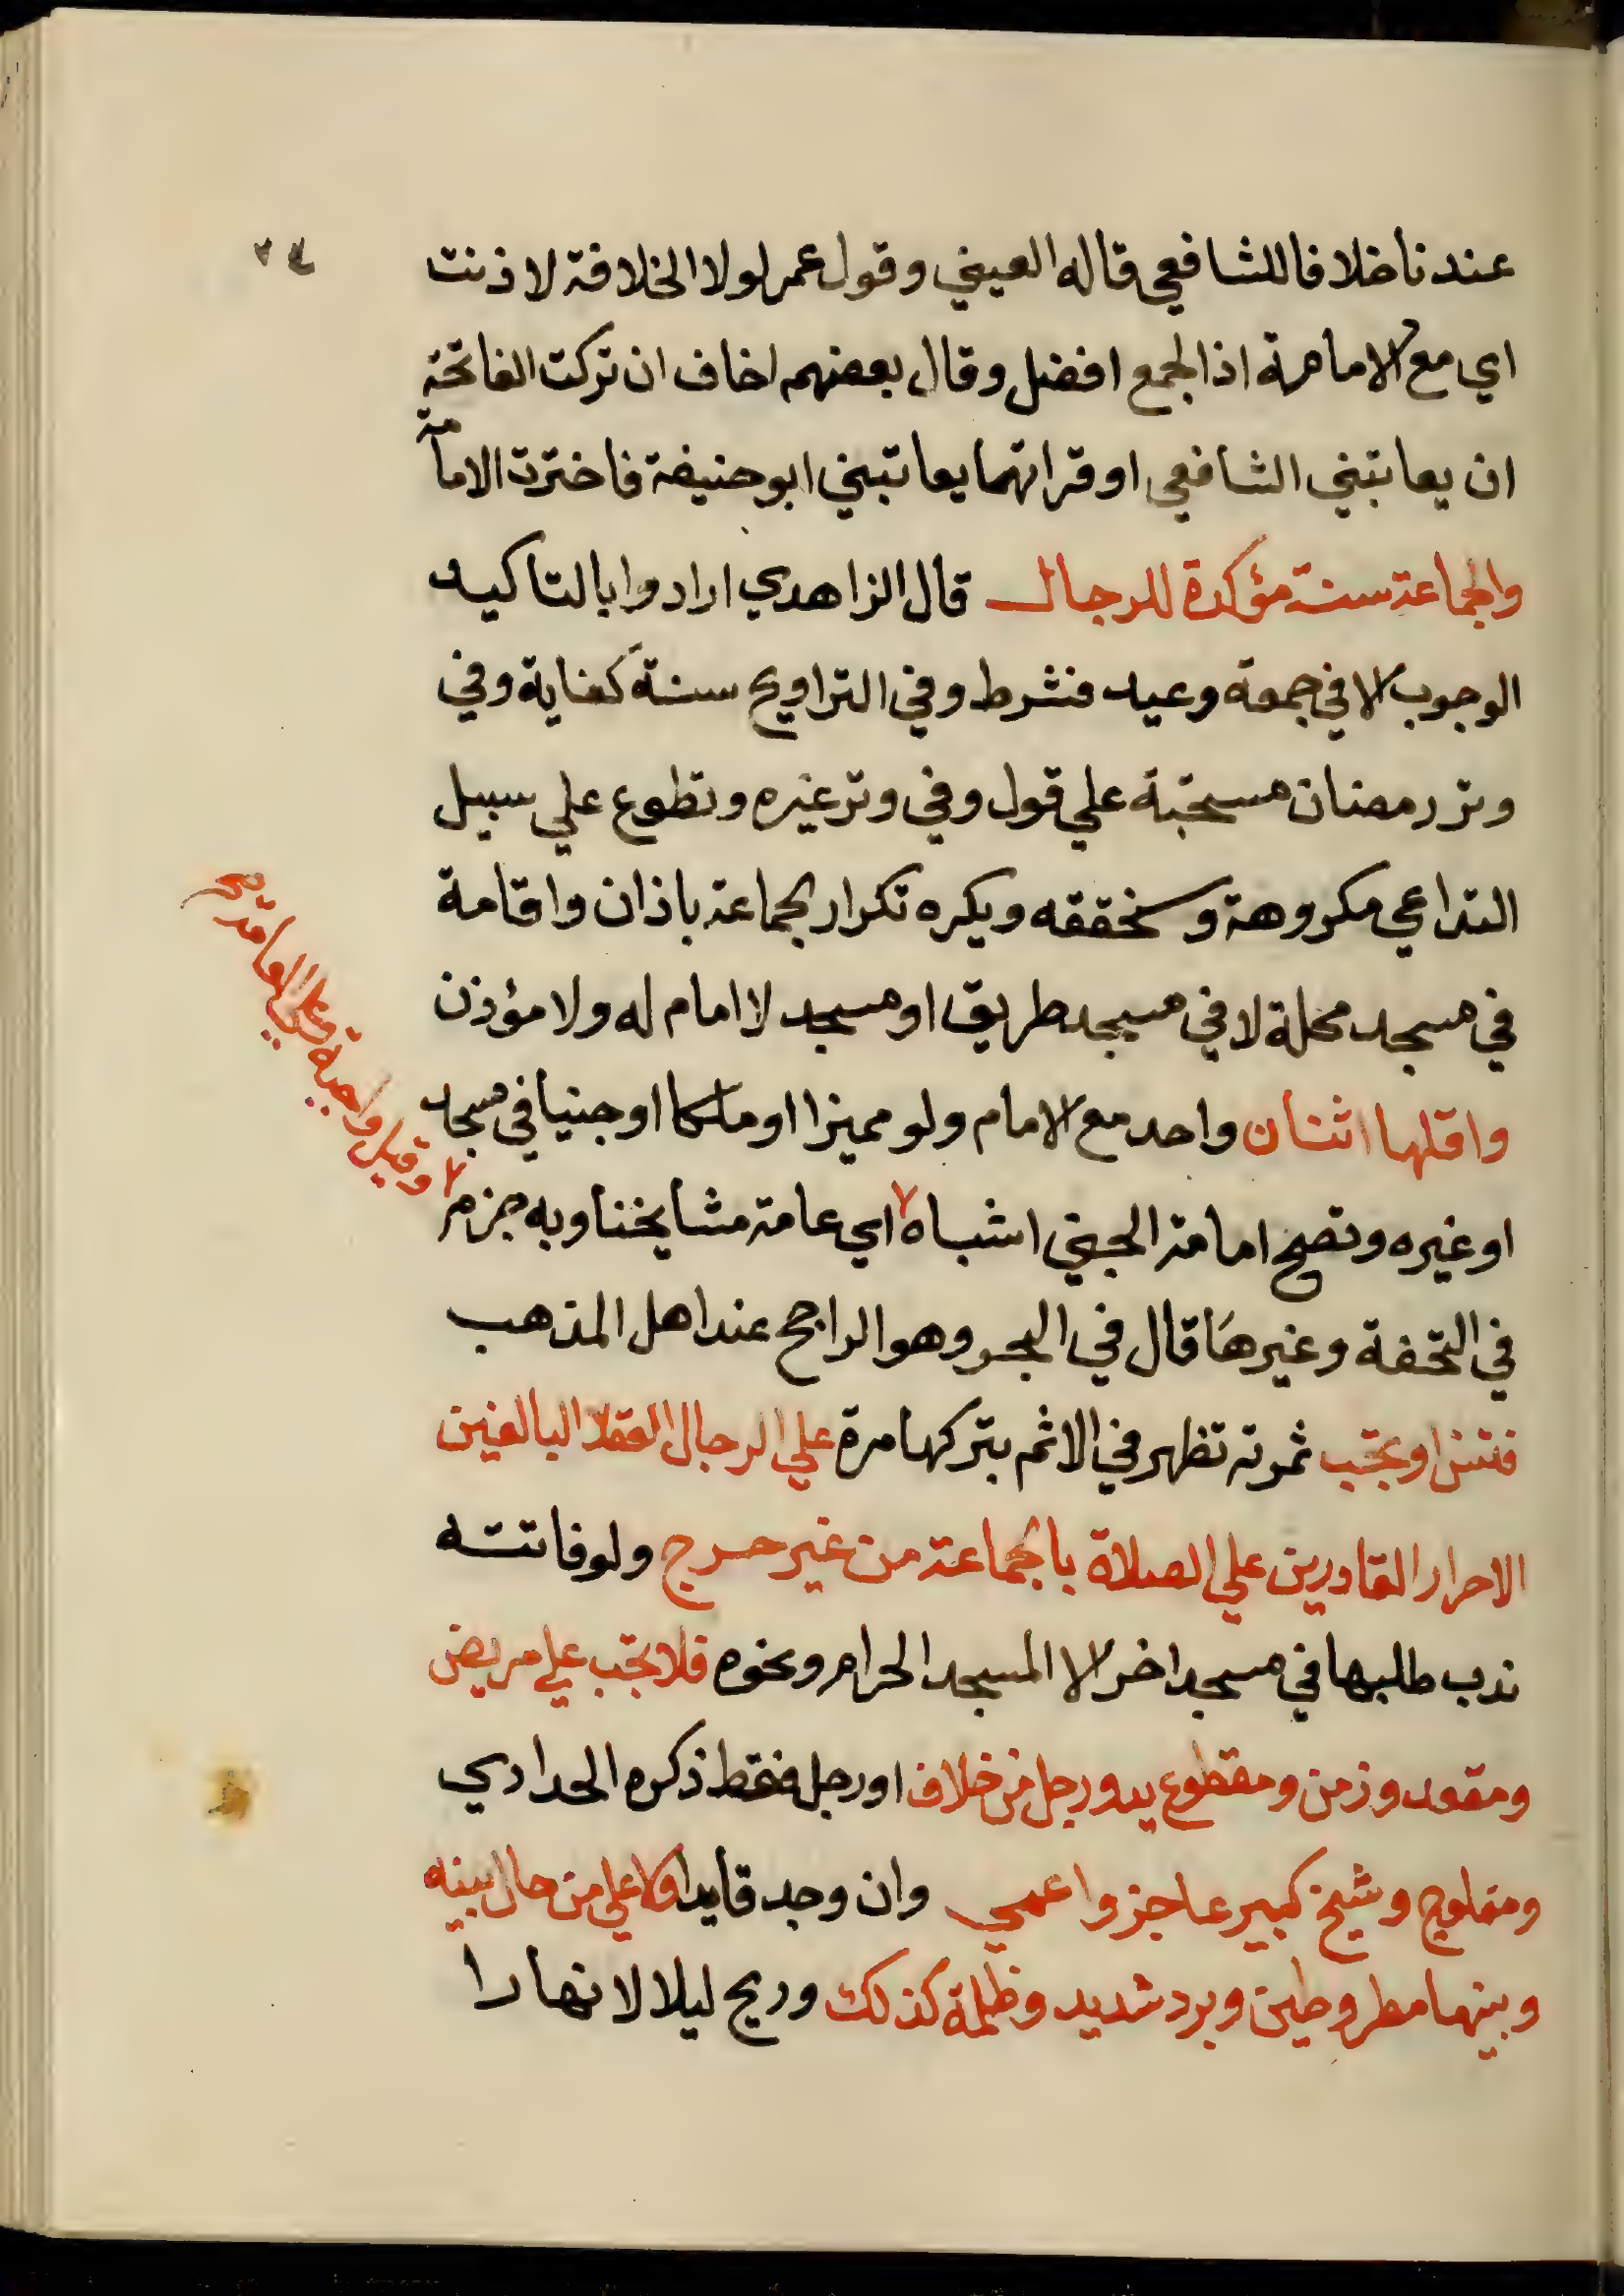 ٧٤
عندنا خلافا للشافعي قاله العيني وقول عمر لولا الخلافة لاذنت
اي مع الامامة اذ الجمع افضل وقال بعضهم اخاف ان تركت الفاتحة
ان يعاتبني الشافعي او قراتها يعاتبني ابو حنيفة فاخترت الامامة
والجماعة سنة مؤكدة للرجال قال الزاهدي ارادوا بالتاكيد
الوجوب الا في جمعة وعيد فشرط وفي التراويح سنة كفاية وفي
وتر رمضان مستحبة علي قول وفي وتر غيره وتطوع علي سبيل
التداعي مكروهة وسنحققه ويكره تكرار الجماعة باذان واقامة
في مسجد محلة لا في مسجد طريق او مسجد لا امام له ولا مؤذن
واقلها اثنان واحد مع الامام ولو مميزا او ملكا او جنيا في مسجد
او غيره وتصح امامة الجني اشباه اي عامة مشايخنا وبه جزم
وقيل واجبة وعليه العامة صح
في التحفة وغيرها قال في البحر وهو الراجح عند اهل المذهب
فتسن او تجب ثمرته تظهر في الاثم بتركها مرة علي الرجال العقلا البالغين
الاحرار القادرين علي الصلاة بالجماعة من غير حرج ولو فاتته
ندب طلبها في مسجد اخر الا المسجد الحرام ونحوه فلا تجب علي مريض
ومقعد وزمن ومقطوع يد ورجل من خلاف او رجل فقط ذكره الحدادي
ومفلوج وشيخ كبير عاجز واعمي وان وجد قايدا ولا علي من حال بينه
وبينها مطر وطين وبرد شديد وظلمة كذلك وريح ليلا لا نهارا